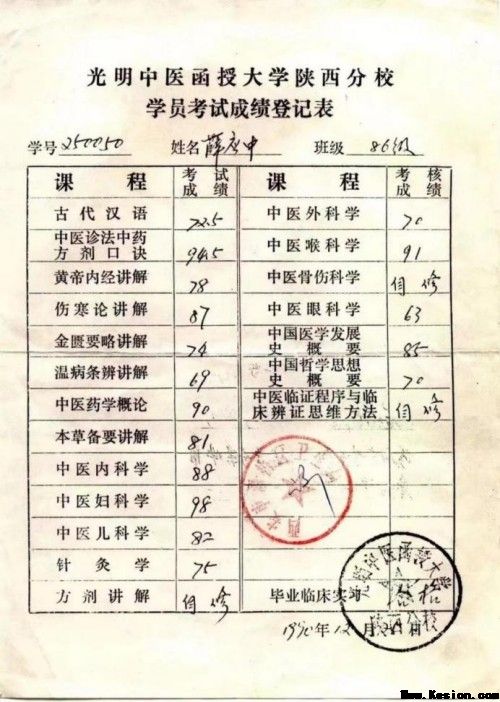 光明中医函授大学陕西分校
学员考试成绩登记表
学号 250050 姓名 薛 中 班级 86级
课程 考试成绩 课程 考核成绩
古代汉语 72.5 中医外科学 70
中医诊法中药方剂口诀 94.5 中医喉科学 91
黄帝内经讲解 78 中医骨伤科学 自修
伤寒论讲解 87 中医眼科学 63
金匮要略讲解 74 中国医学发展史概要 85
温病条辨讲解 69 中国哲学思想史概要 70
中医药学概论 90 中医临证程序与临床辨证思维方法 自修
本草备要讲解 81
中医内科学 88
中医妇科学 98
中医儿科学 82
针灸学 75
方剂讲解 自修 毕业临床实习 合格
1990年12月 日
光明中医函授大学
陕西分校
Www.Kesion.com